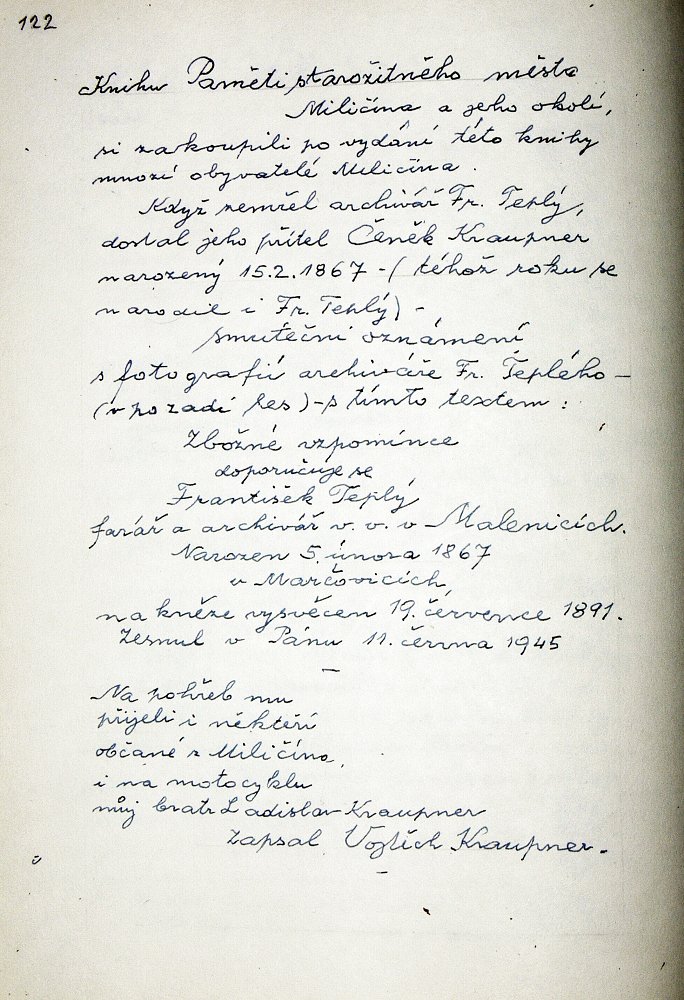 122
Knihu Paměti starožitného města
Miličína a jeho okolí,
si zakoupili po vydání této knihy
mnozí obyvatelé Miličína.
Když zemřel archivář Fr. Teplý,
dostal jeho přítel Čeněk Kraupner
narozený 15.2.1867 - (téhož roku se
narodil i Fr. Teplý) -
smuteční oznámení
s fotografií archiváře Fr. Teplého -
(v pozadí les) - s tímto textem :
Zbožné vzpomínce
doporučuje se
František Teplý
farář a archivář v. v. v Malenicích.
Narozen 5. února 1867
v Marčovicích
na kněze vysvěcen 19. července 1891.
Zesnul v Pánu 11. června 1945
Na pohřeb mu
přijeli i někteří
občané z Miličína,
i na motocyklu
můj bratr Ladislav Kraupner
Zapsal Vojtěch Kraupner.